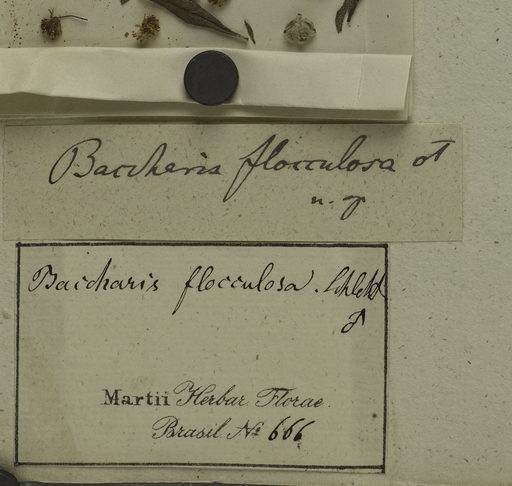 Baccharis flocculosa
n. ♂
Baccharis flocculosa. Schltdl
♂
Martii Herbar. Florae.
Brasil. Nº 666